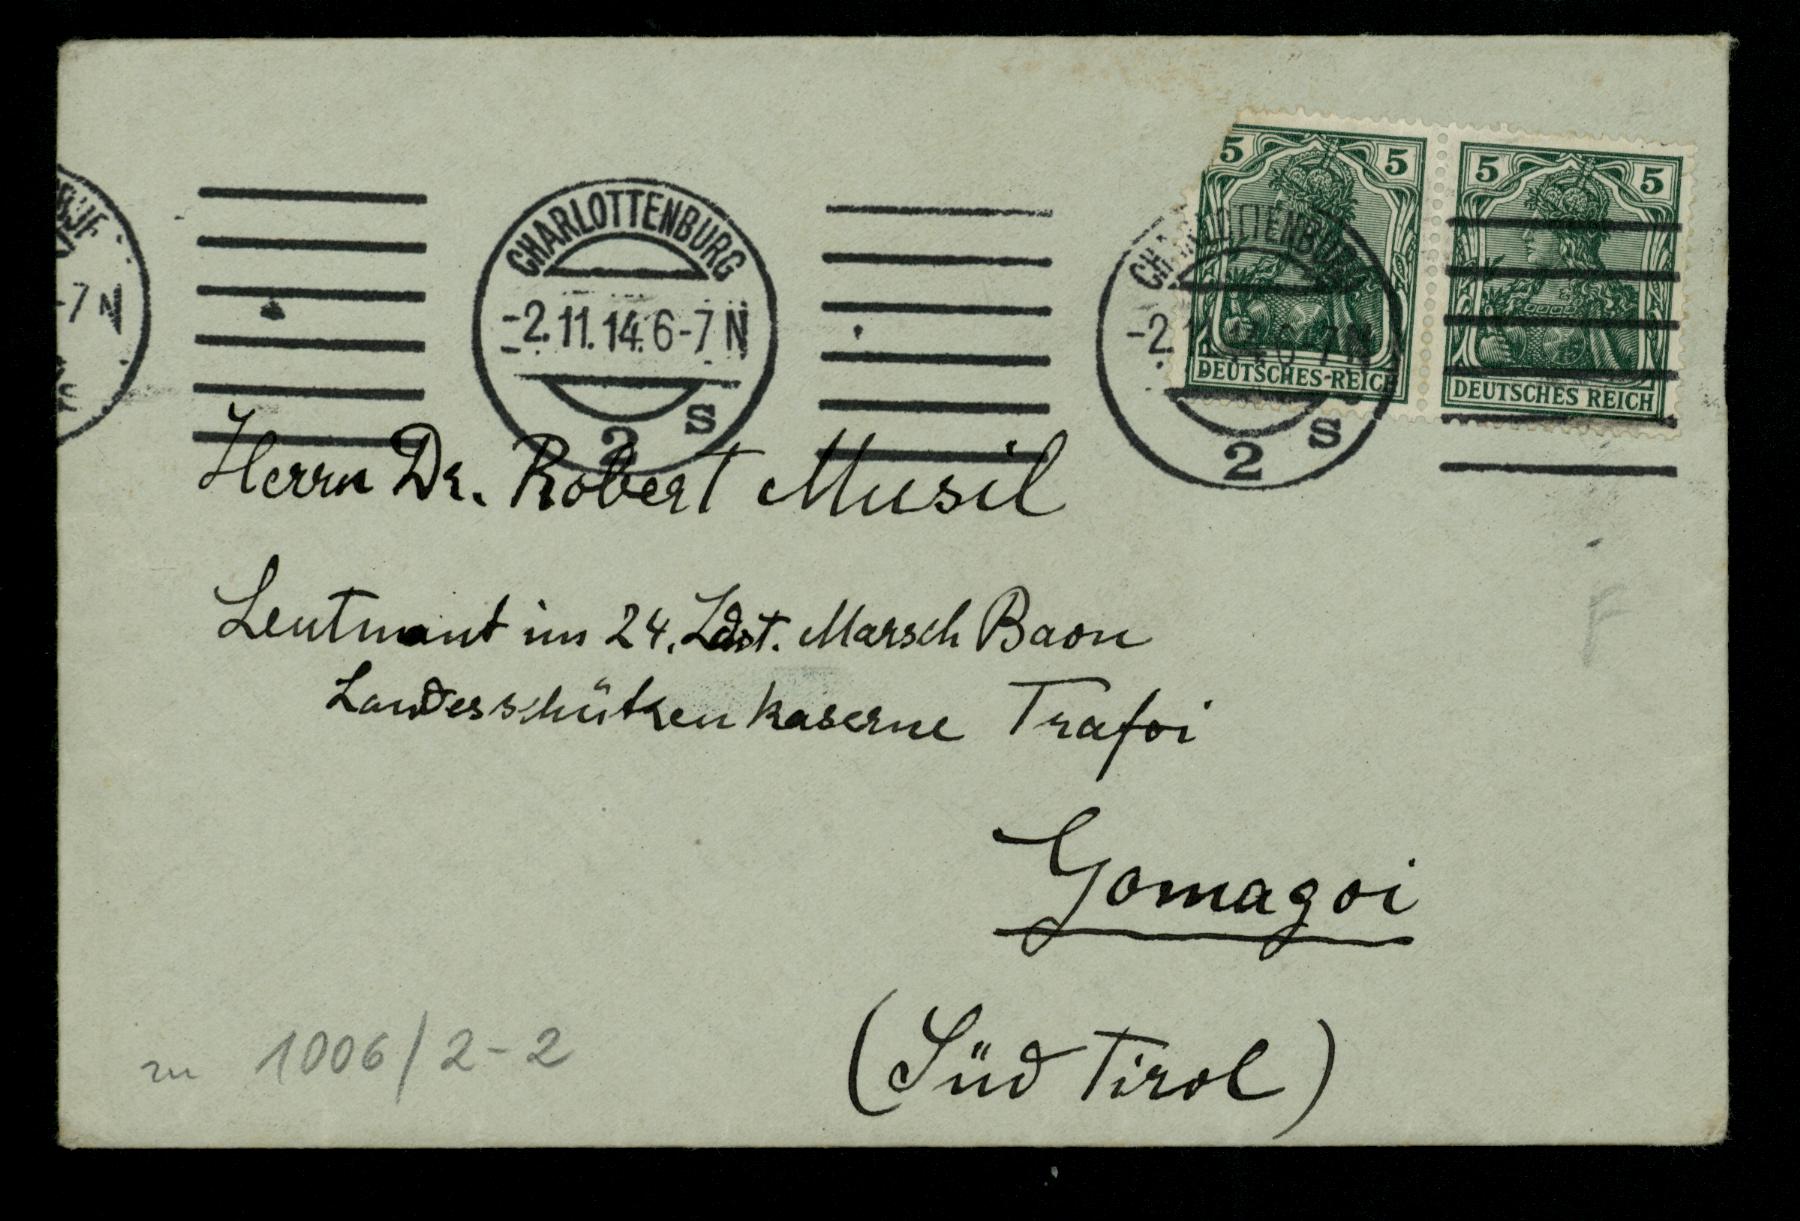 5 5 5 5
CHARLOTTENBURG CHARLOTTENBURG
-7 N -2.11.14. 6-7 N -2. 6-7 N
DEUTSCHES REICH DEUTSCHES REICH
2 s 2 s
Herrn Dr. Robert Musil
Leutnant im 24. Ldst. Marsch Baon
Landesschützenkaserne Trafoi
Gomagoi
(Süd Tirol)
zu 1006/2-2
F